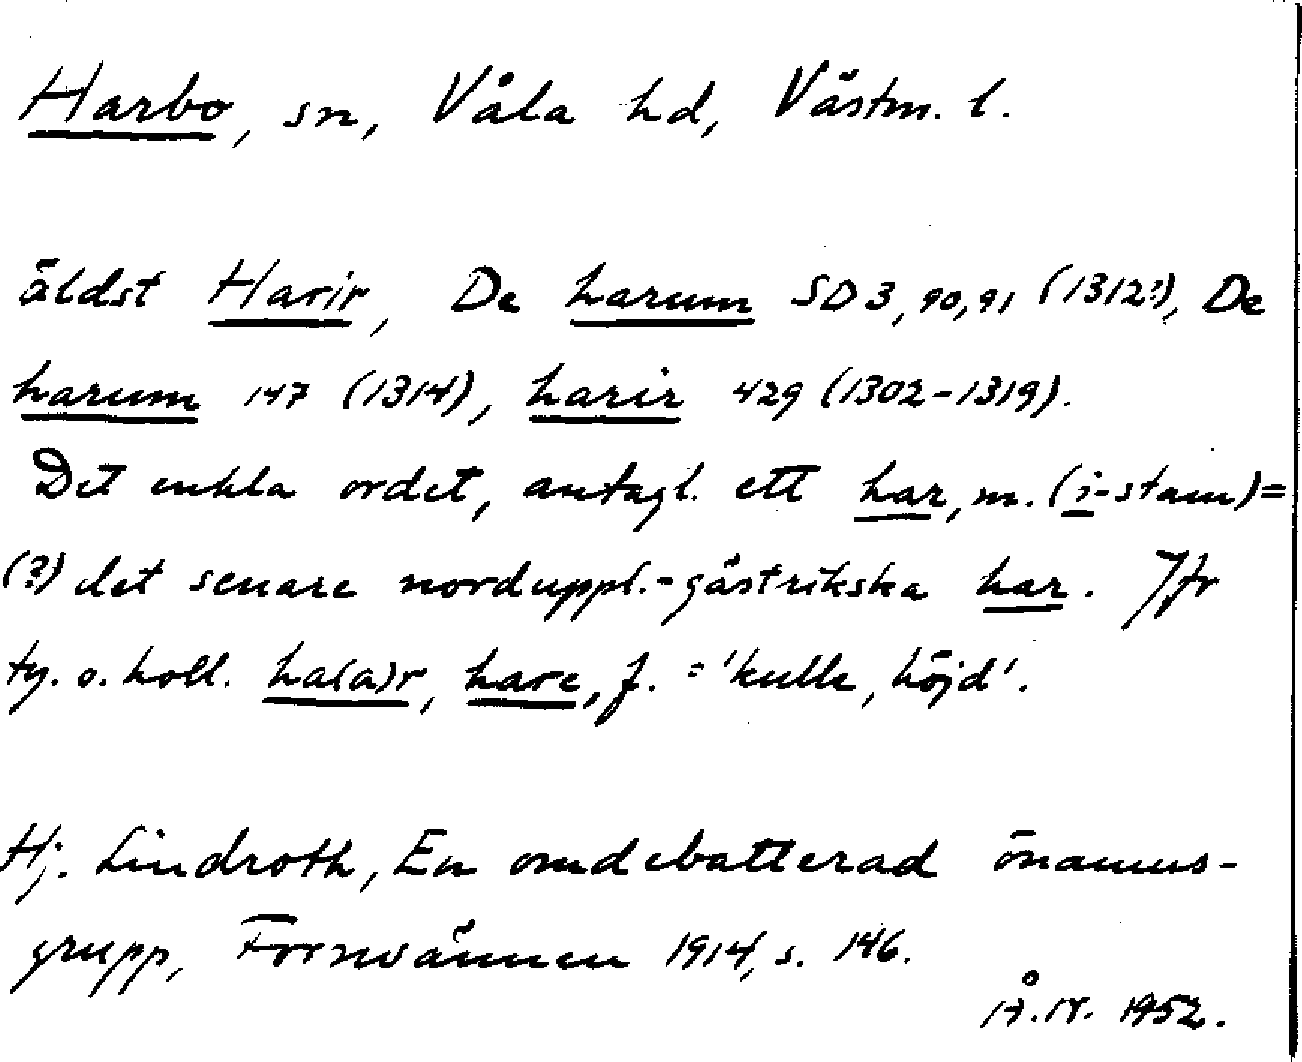 Harbo, sn, Våla hd, Västm. l.
äldst Harir, De harum SD 3, 90, 91 (1312?), De
harum 147 (1314), harir 429 (1302-1319).
Det enkla ordet, antagl. ett har, m. (i-stam) =
(?) det senare norduppl.-gästrikska har. Jfr
ty. o. holl. ha(a)r, hare, f. = 'kulle, höjd'.
Hj. Lindroth, En omdebatterad önamns-
grupp, Fornvännen 1914, s. 146.
1952.